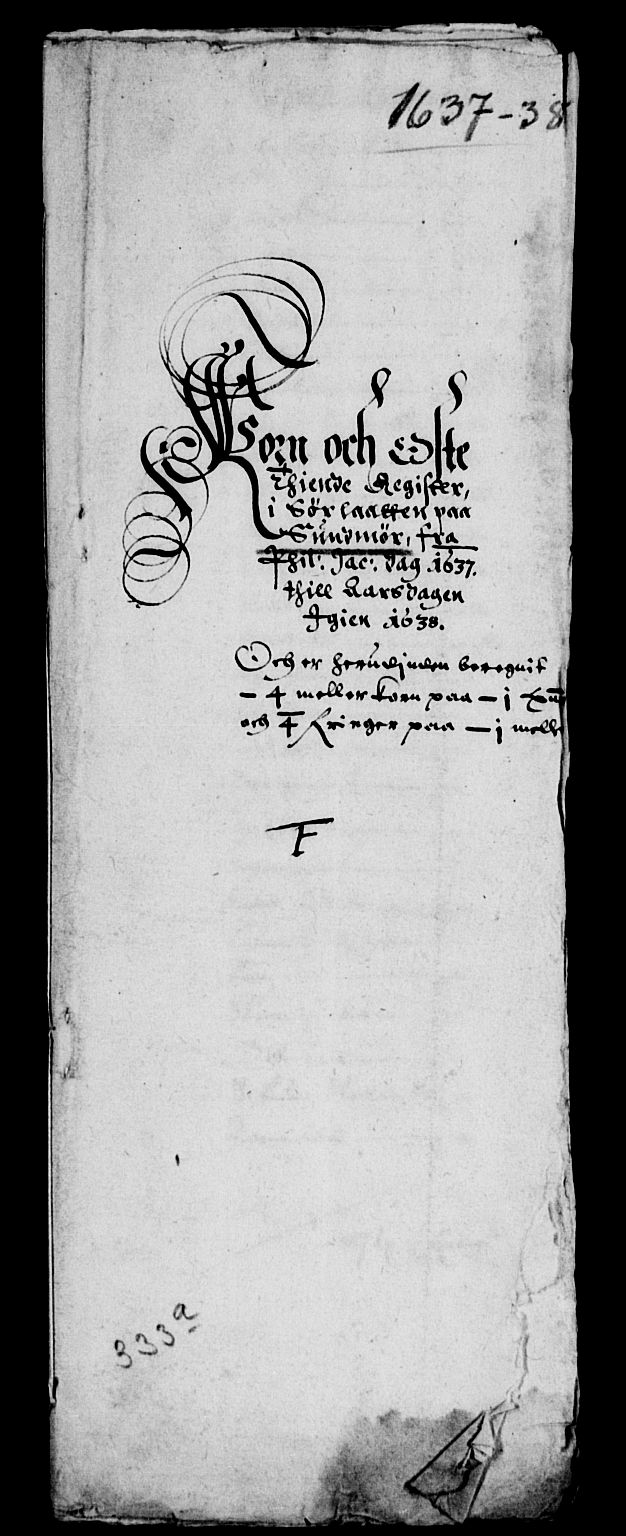 1637-38
Korn och Oste
Thiende Register,
i Sørlaatten paa
Sundmør, fra
Phil: Jac: dag 1637.
thill Aarsdagen
Igien 1638.
Och er herudjnden beregnit
- 4 meller korn paa - j
och 4 Kringer paa - j melle
F
333a